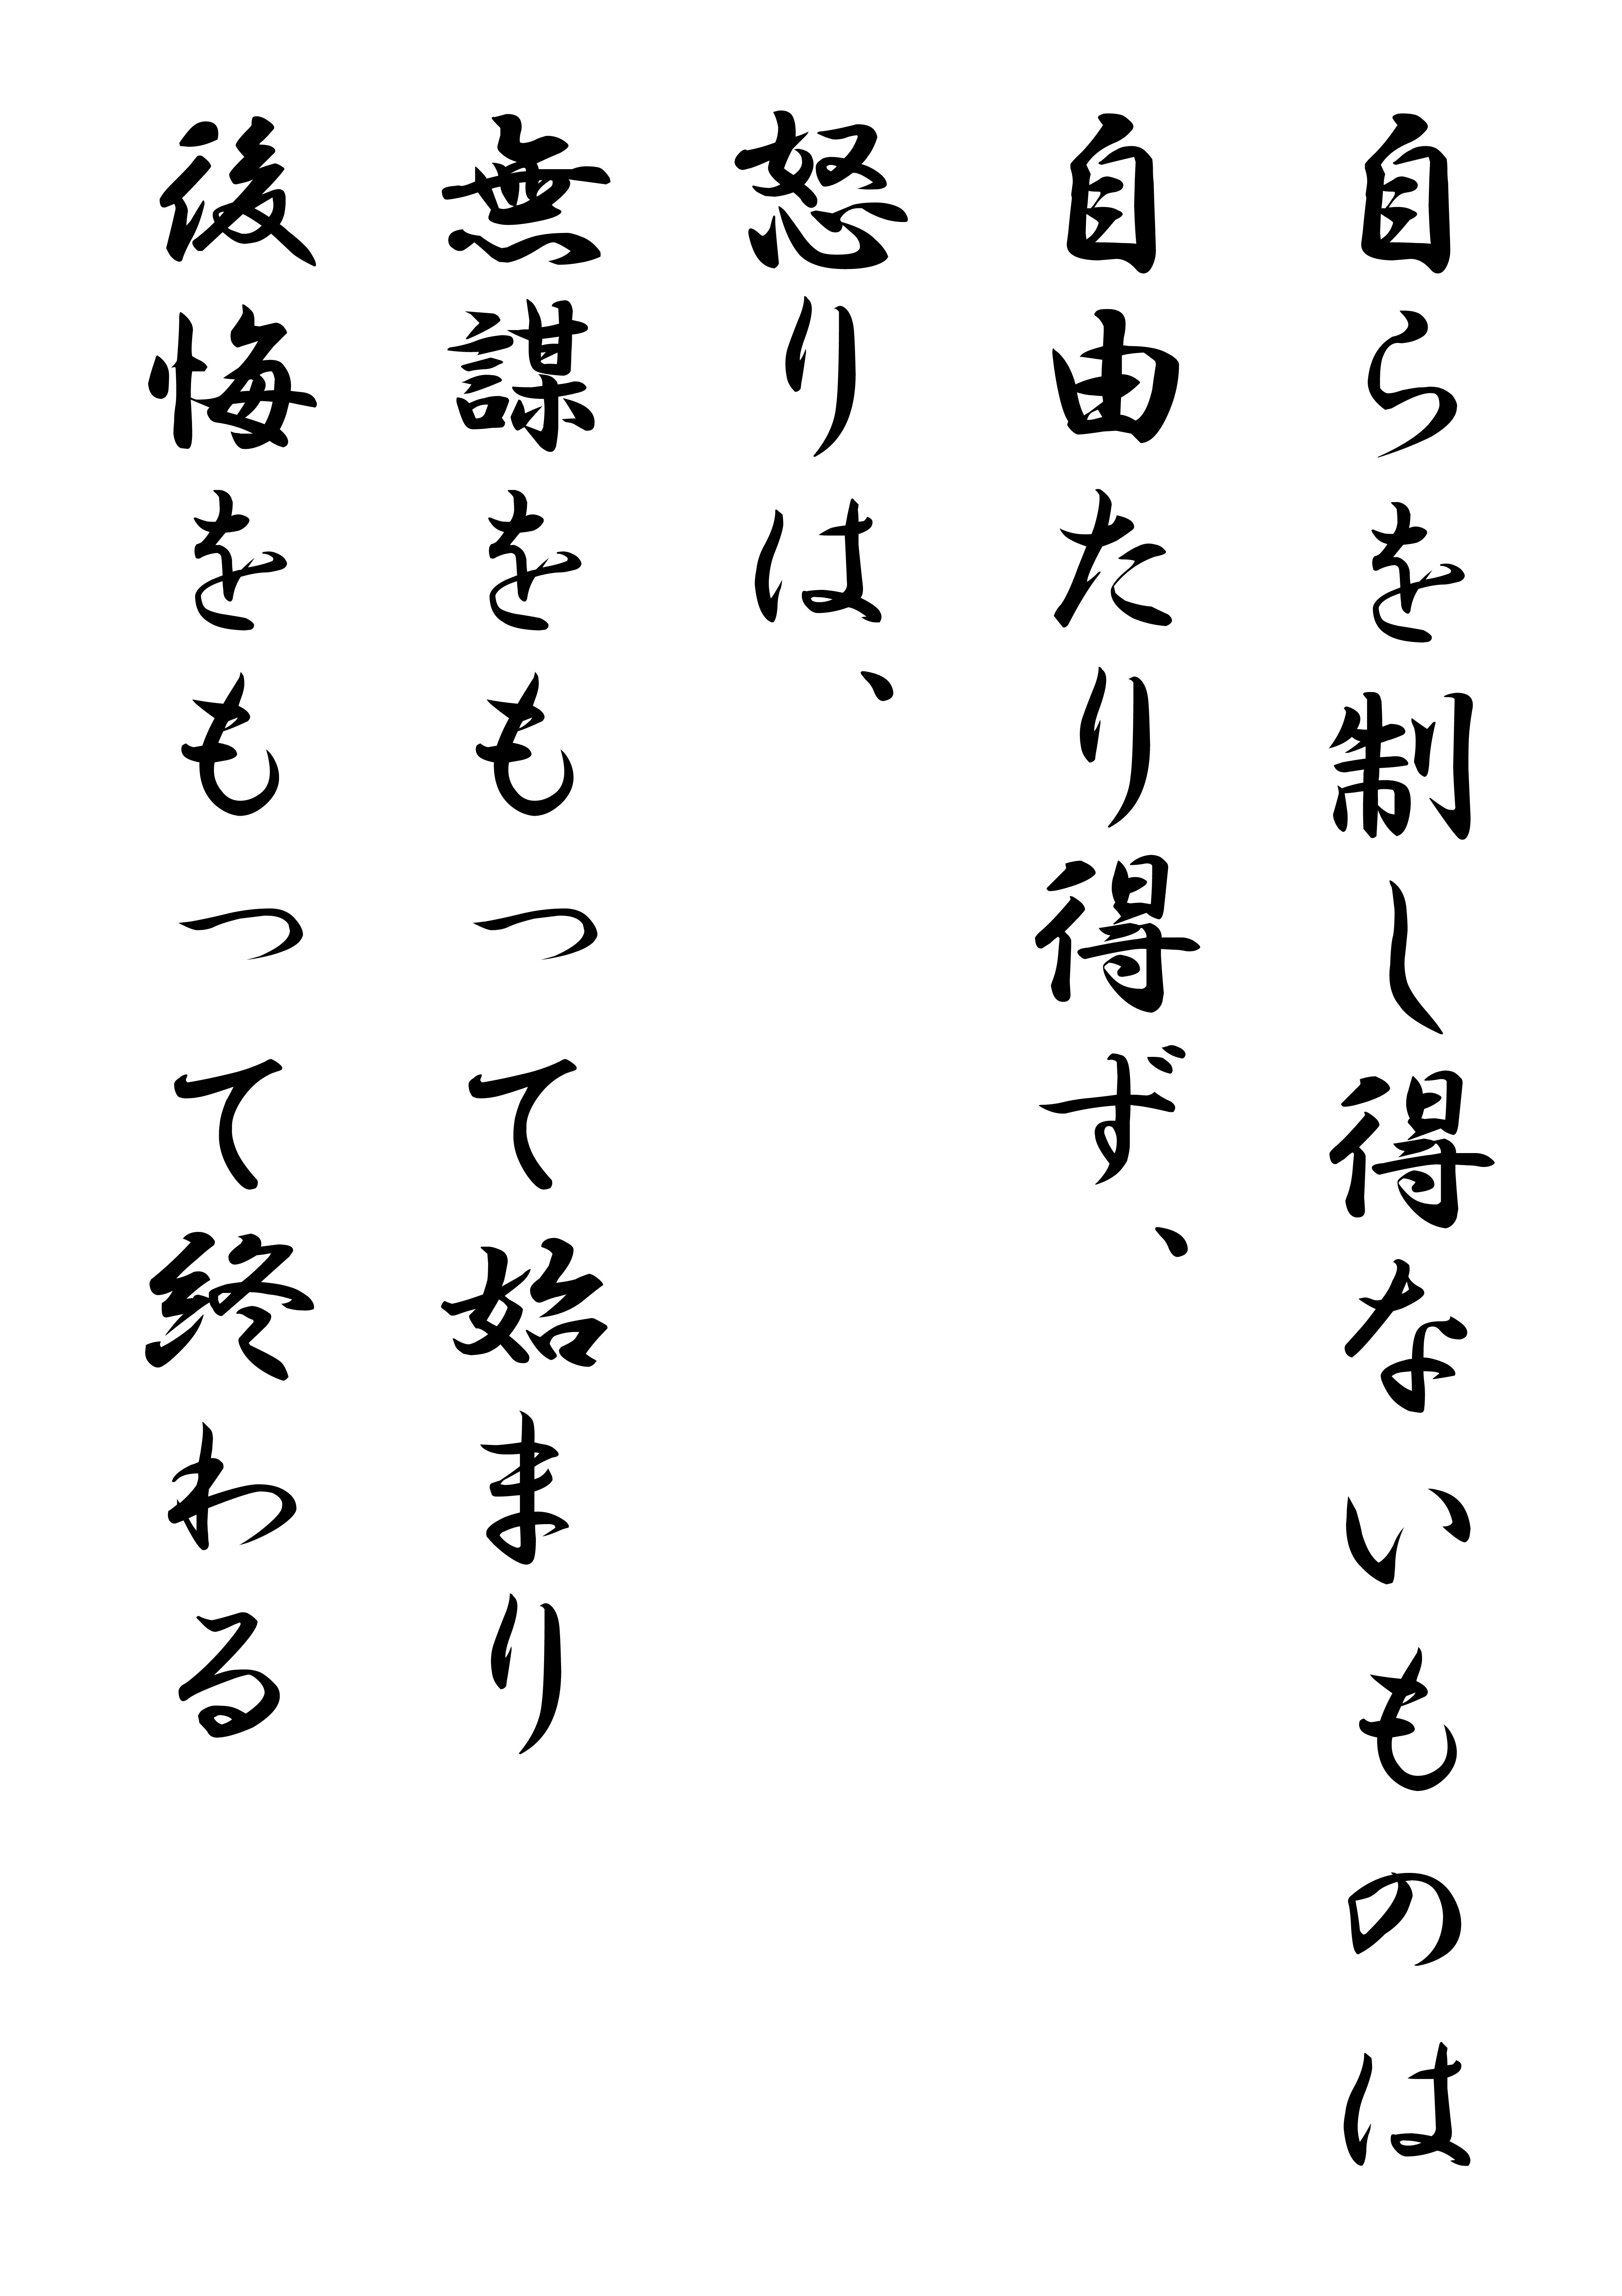 自らを制し得ないものは
自由たり得ず、
怒りは、
無謀をもって始まり
後悔をもって終わる